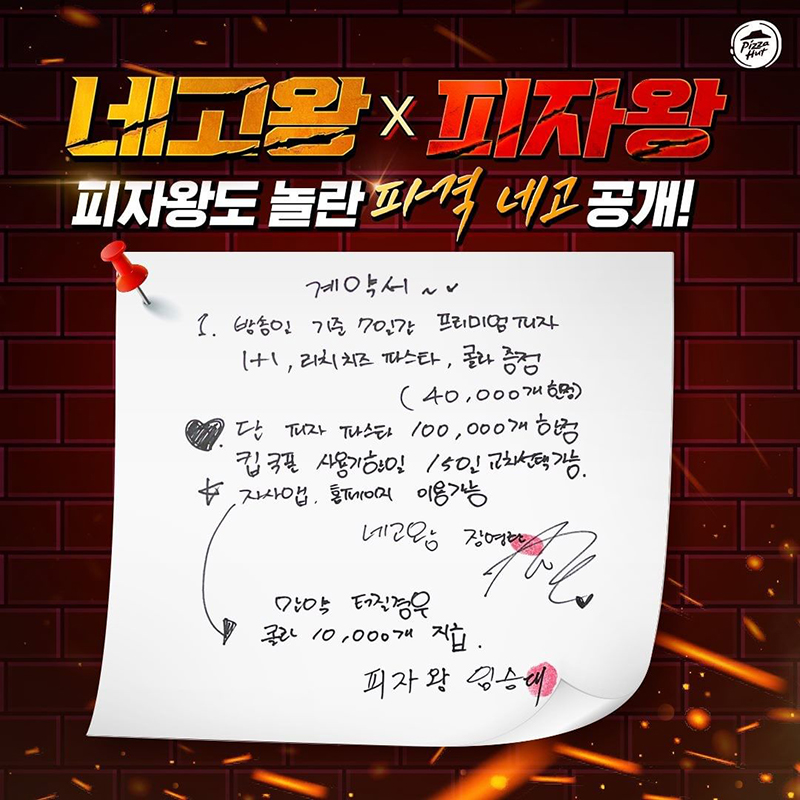 Pizza
Hut
네고왕 X 피자왕
피자왕도 놀란 파격 네고 공개!
계약서 ~
1. 방송일 기준 7일간 프리미엄피자
1+1, 리치치즈 파스타, 콜라 증정
(40,000개 한정)
단 피자 파스타 100,000개 한정
킵쿠폰 사용기한일 150일 교차선택가능.
자사앱. 홈페이지 이용가능
네고왕 장영란
만약 터진경우
콜라 10,000개 지급.
피자왕 임승대